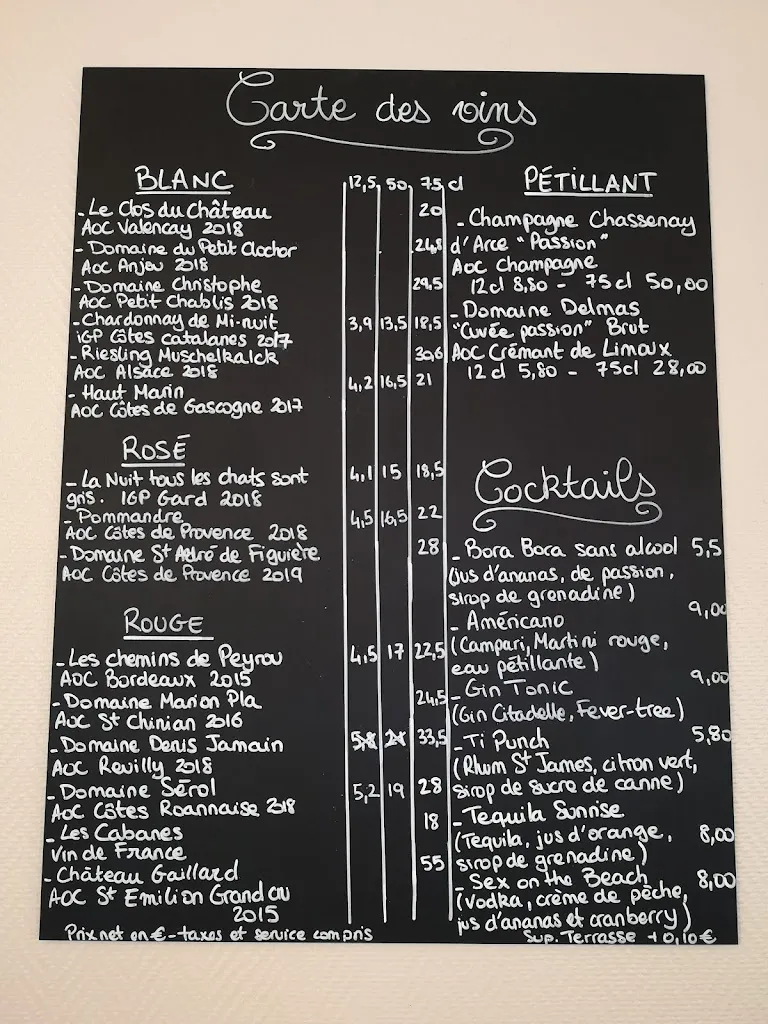 Carte des vins
BLANC
12,5 50 75 cl
- Le Clos du Château 20
AOC Valencay 2018
- Domaine du Petit Clochor
AOC Anjou 2018
- Domaine Christophe 29,5
AOC Petit Chablis 2018
- Chardonnay de Mi-nuit 3,9 13,5 18,5
IGP Côtes catalanes 2017
- Riesling Muschelkalck 30,6
AOC Alsace 2018
- Haut Marin 4,2 16,5 21
AOC Côtes de Gascogne 2017
ROSÉ
- La Nuit tous les chats sont 4,1 15 18,5
gris. IGP Gard 2018
- Pommandre 4,5 16,5 22
AOC Côtes de Provence 2018
- Domaine St André de Figuière 28
AOC Côtes de Provence 2019
ROUGE
- Les chemins de Peyrou 4,5 17 22,5
AOC Bordeaux 2015
- Domaine Marion Pla 24,5
AOC St Chinian 2016
- Domaine Denis Jamain 5,8 21 33,5
AOC Reuilly 2018
- Domaine Sérol 5,2 19 28
AOC Côtes Roannaise 2018
- Les Cabanes 18
Vin de France
- Château Gaillard 55
AOC St Emilion Grand cru
2015
Prix net en € - taxes et service compris
PÉTILLANT
- Champagne Chassenay
d'Arce "Passion"
AOC Champagne
12cl 8,80 - 75cl 50,00
- Domaine Delmas
"Cuvée passion" Brut
AOC Crémant de Limoux
12 cl 5,80 - 75cl 28,00
Cocktails
- Bora Bora sans alcool 5,5
(jus d'ananas, de passion,
sirop de grenadine)
- Américano 9,00
(Campari, Martini rouge,
eau pétillante)
- Gin Tonic 9,00
(Gin Citadelle, Fever-tree)
- Ti Punch 5,80
(Rhum St James, citron vert,
sirop de sucre de canne)
- Tequila Sunrise
(Tequila, jus d'orange, 8,00
sirop de grenadine)
- Sex on the Beach 8,00
(Vodka, crème de pêche,
jus d'ananas et cranberry)
Sup. Terrasse + 0,10 €